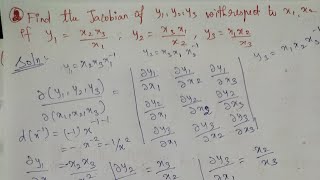 Find the Jacobian of y₁, y₂, y₃ with respect to x₁, x₂
if y₁ = x₂x₃/x₁ ; y₂ = x₃x₁/x₂ , y₃ = x₁x₂/x₃
Soln:
y₁ = x₂x₃x₁⁻¹ y₂ = x₃x₁x₂⁻¹ y₃ = x₁x₂x₃⁻¹
∂(y₁,y₂,y₃)/∂(x₁,x₂,x₃) = | ∂y₁/∂x₁ ∂y₁/∂x₂ ∂y₁/∂x₃ |
| ∂y₂/∂x₁ ∂y₂/∂x₂ ∂y₂/∂x₃ |
| ∂y₃/∂x₁ ∂y₃/∂x₂ ∂y₃/∂x₃ |
d(x⁻¹) = (-1)x
= -x⁻² = -1/x²
∂y₁ = -x₂x₃ ∂y₂ = x₃ ∂y₃ = x₂/x₃